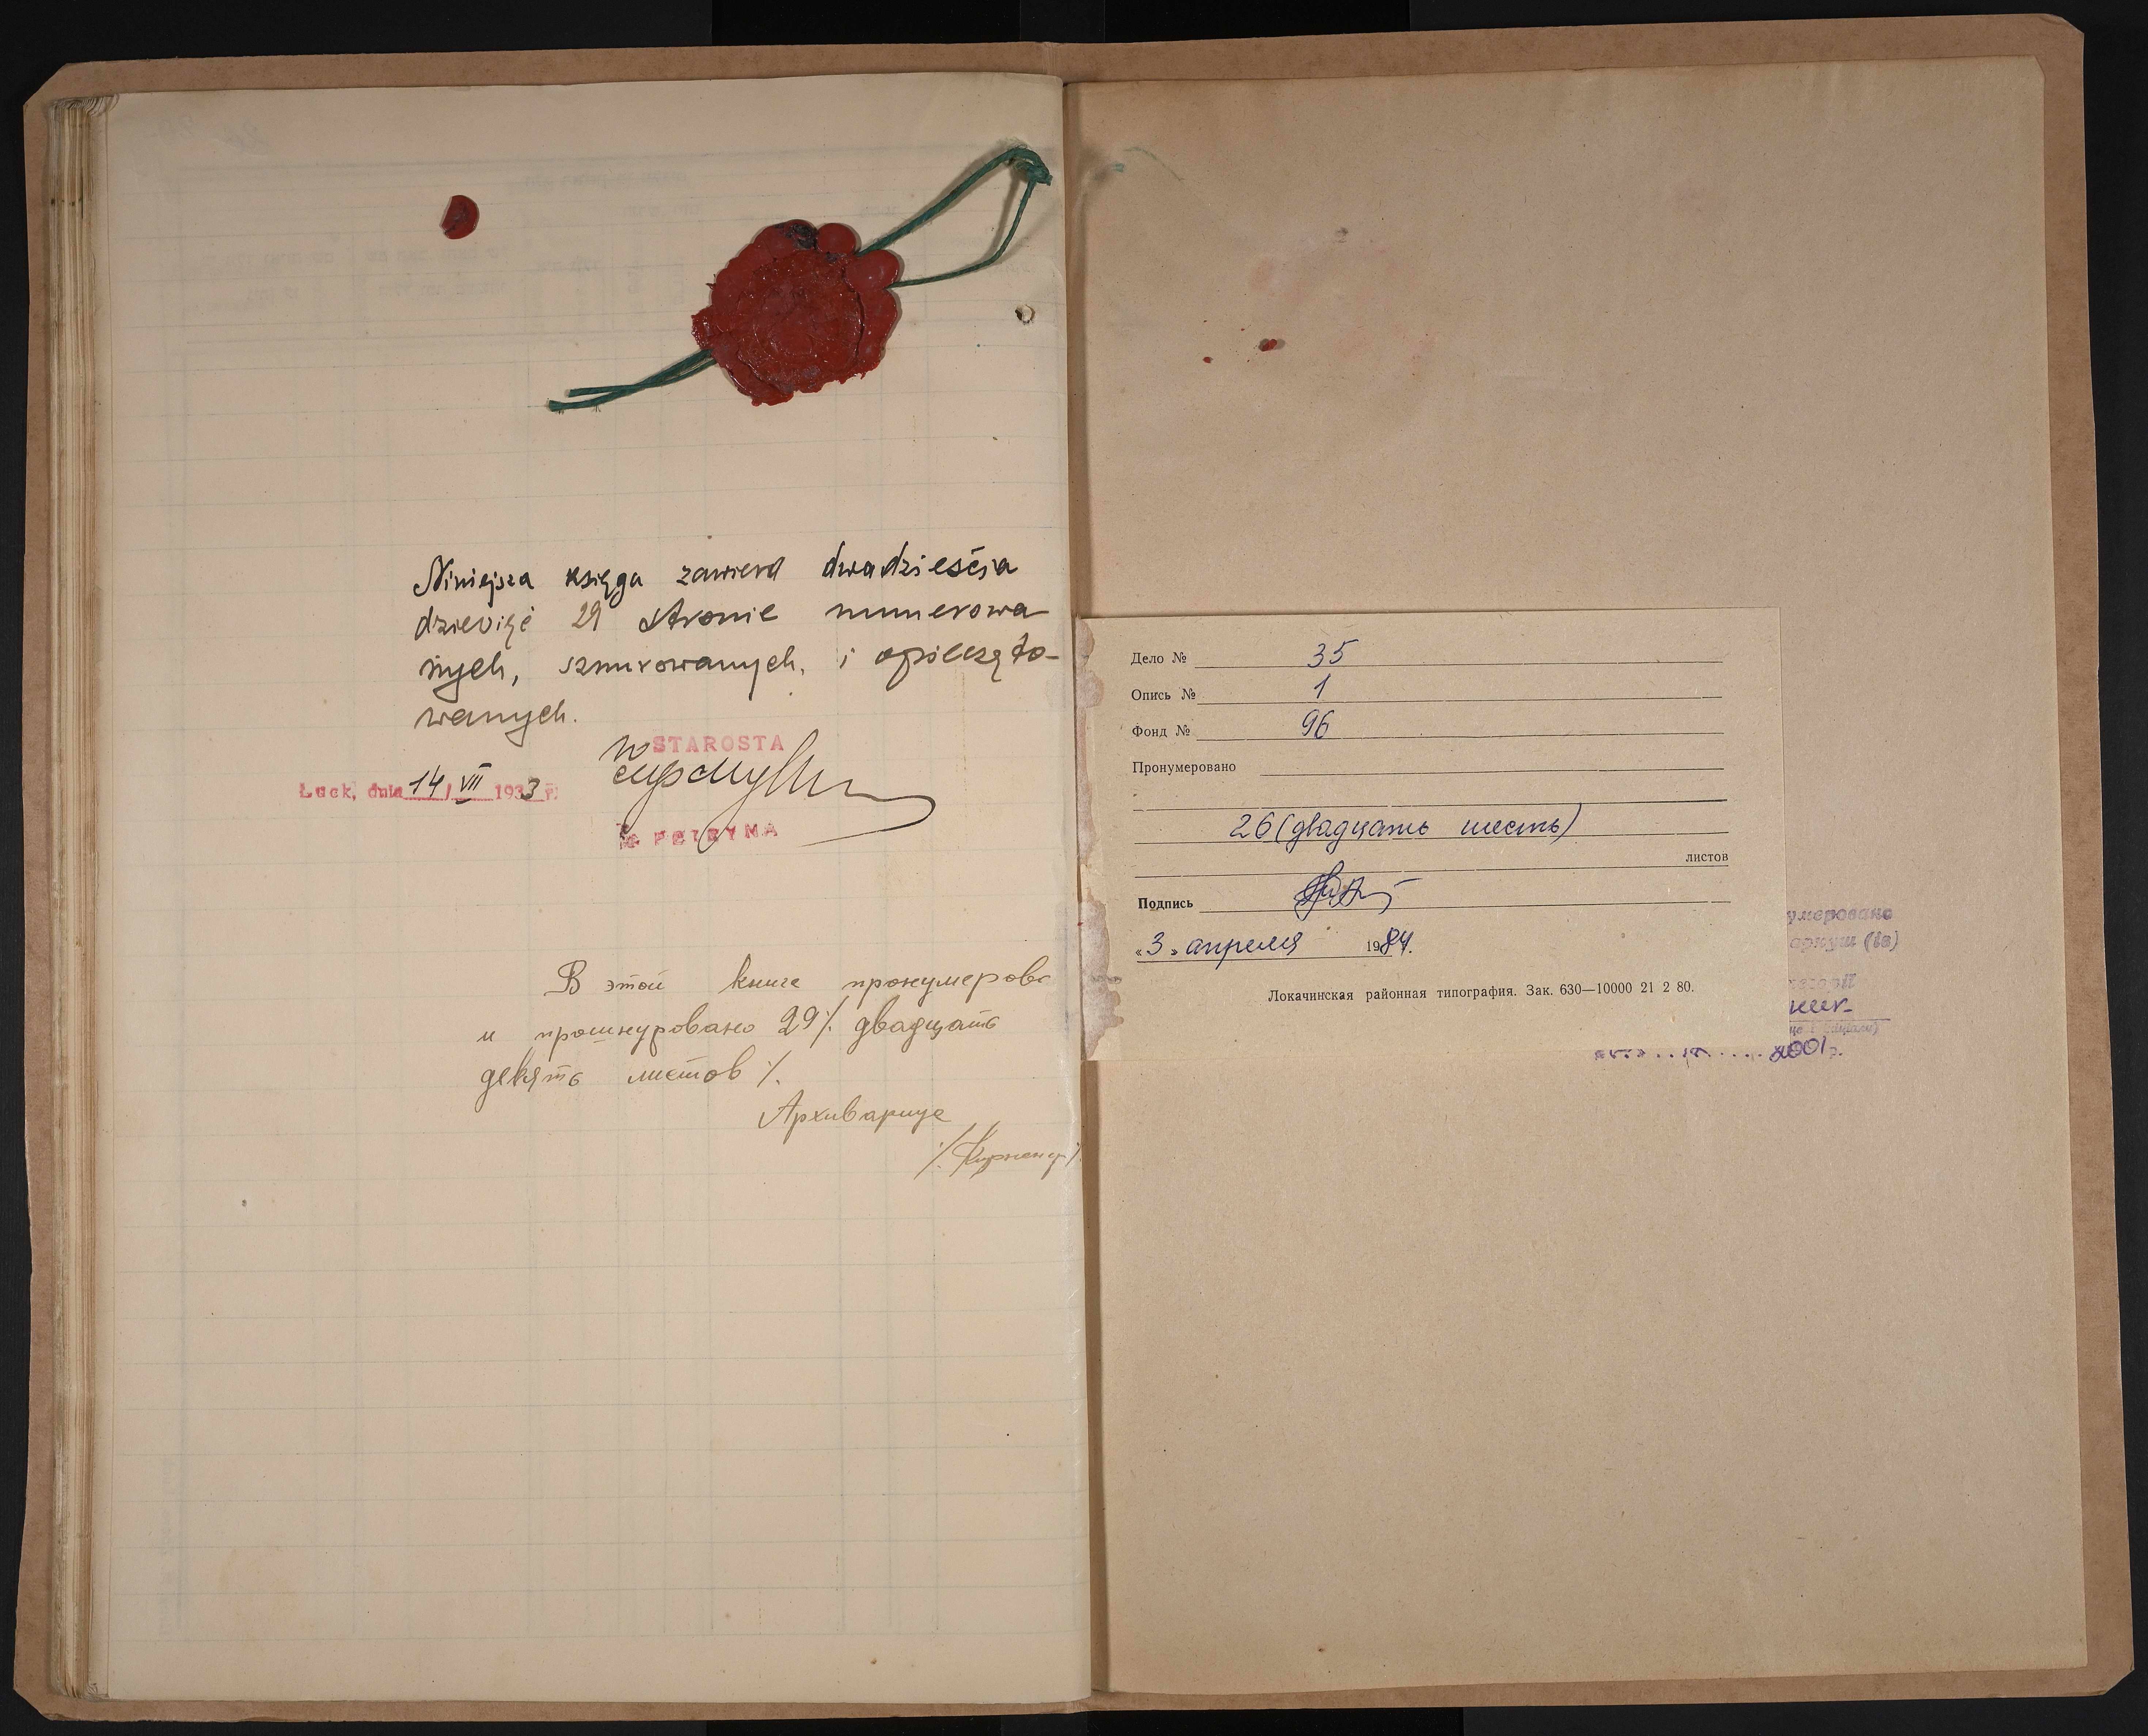 Niniejsza księga zawiera dwadzieścia
dziewięć 29 stronic numerowa
nych, sznurowanych, i opieczęto-
wanych.
STAROSTA
Łuck, dnia 14/VII 1933 r.
В этой книге пронумерова
и прошнуровано 29% двадцать
девять листов %.
Архивариус
Дело № 35
Опись № 1
Фонд № 96
Пронумеровано
26 (двадцать шесть)
листов
Подпись
«3» апреля 1984.
Локачинская районная типография. Зак. 630—10000 21 2 80.
умеровано
аркуш (ів)
2001 р.